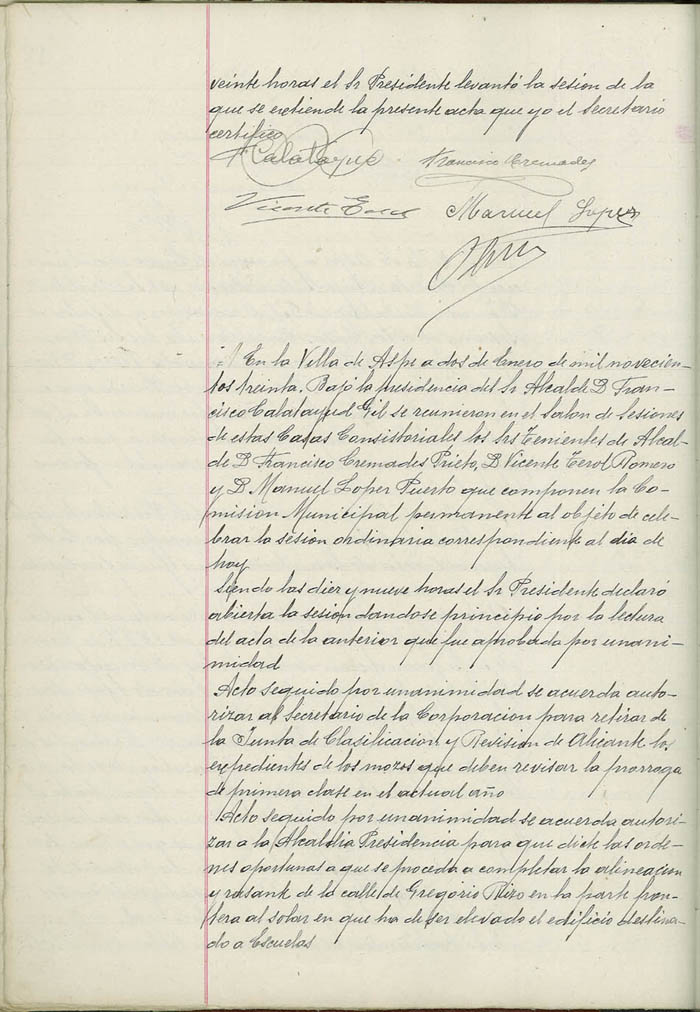 veinte horas el Sr Presidente levantó la sesion de la
que se extiende la presente acta que yo el Secretario
certifico
F Calatayud Francisco Cremades
Vicente Terol Manuel Lopez
En la Villa de Aspe a dos de Enero de mil novecien-
tos treinta. Bajo la presidencia del Sr Alcalde D. Fran-
cisco Calatayud Gil se reunieron en el Salon de Sesiones
de estas Casas Consistoriales los Srs Tenientes de Alcal-
de D. Francisco Cremades Prieto, D. Vicente Terol Romero
y D. Manuel Lopez Puerto que componen la Co-
mision Municipal permanente al objéto de cele-
brar la sesion ordinaria correspondiente al dia de
hoy
Siendo las diez y nueve horas el Sr Presidente declaró
abierta la sesion dandose principio por la lectura
del acta de la anterior que fue aprobada por unani-
midad
Acto seguido por unanimidad se acuerda auto-
rizar al Secretario de la Corporacion para retirar de
la Junta de Clasificacion y Revision de Alicante los
expedientes de los mozos que deben revisar la prorroga
de primera clase en el actual año
Acto seguido por unanimidad se acuerda autori-
zar a la Alcaldia Presidencia para que dicte las orde-
nes oportunas a que se proceda a completar la alineacion
y rasante de la calle de Gregorio Rizo en la parte fron-
tera al solar en que ha de ser elevado el edificio destina-
do a Escuelas